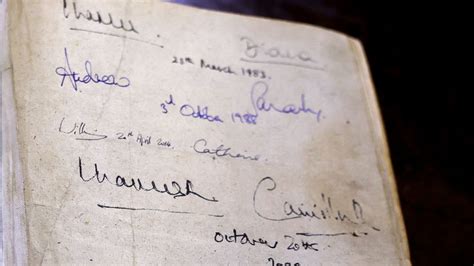 Charles Diana
28th March 1983
Andrew Sarah
3rd October 1988
William 20th April 2014 Catherine
Charles R Camilla R
October 20th